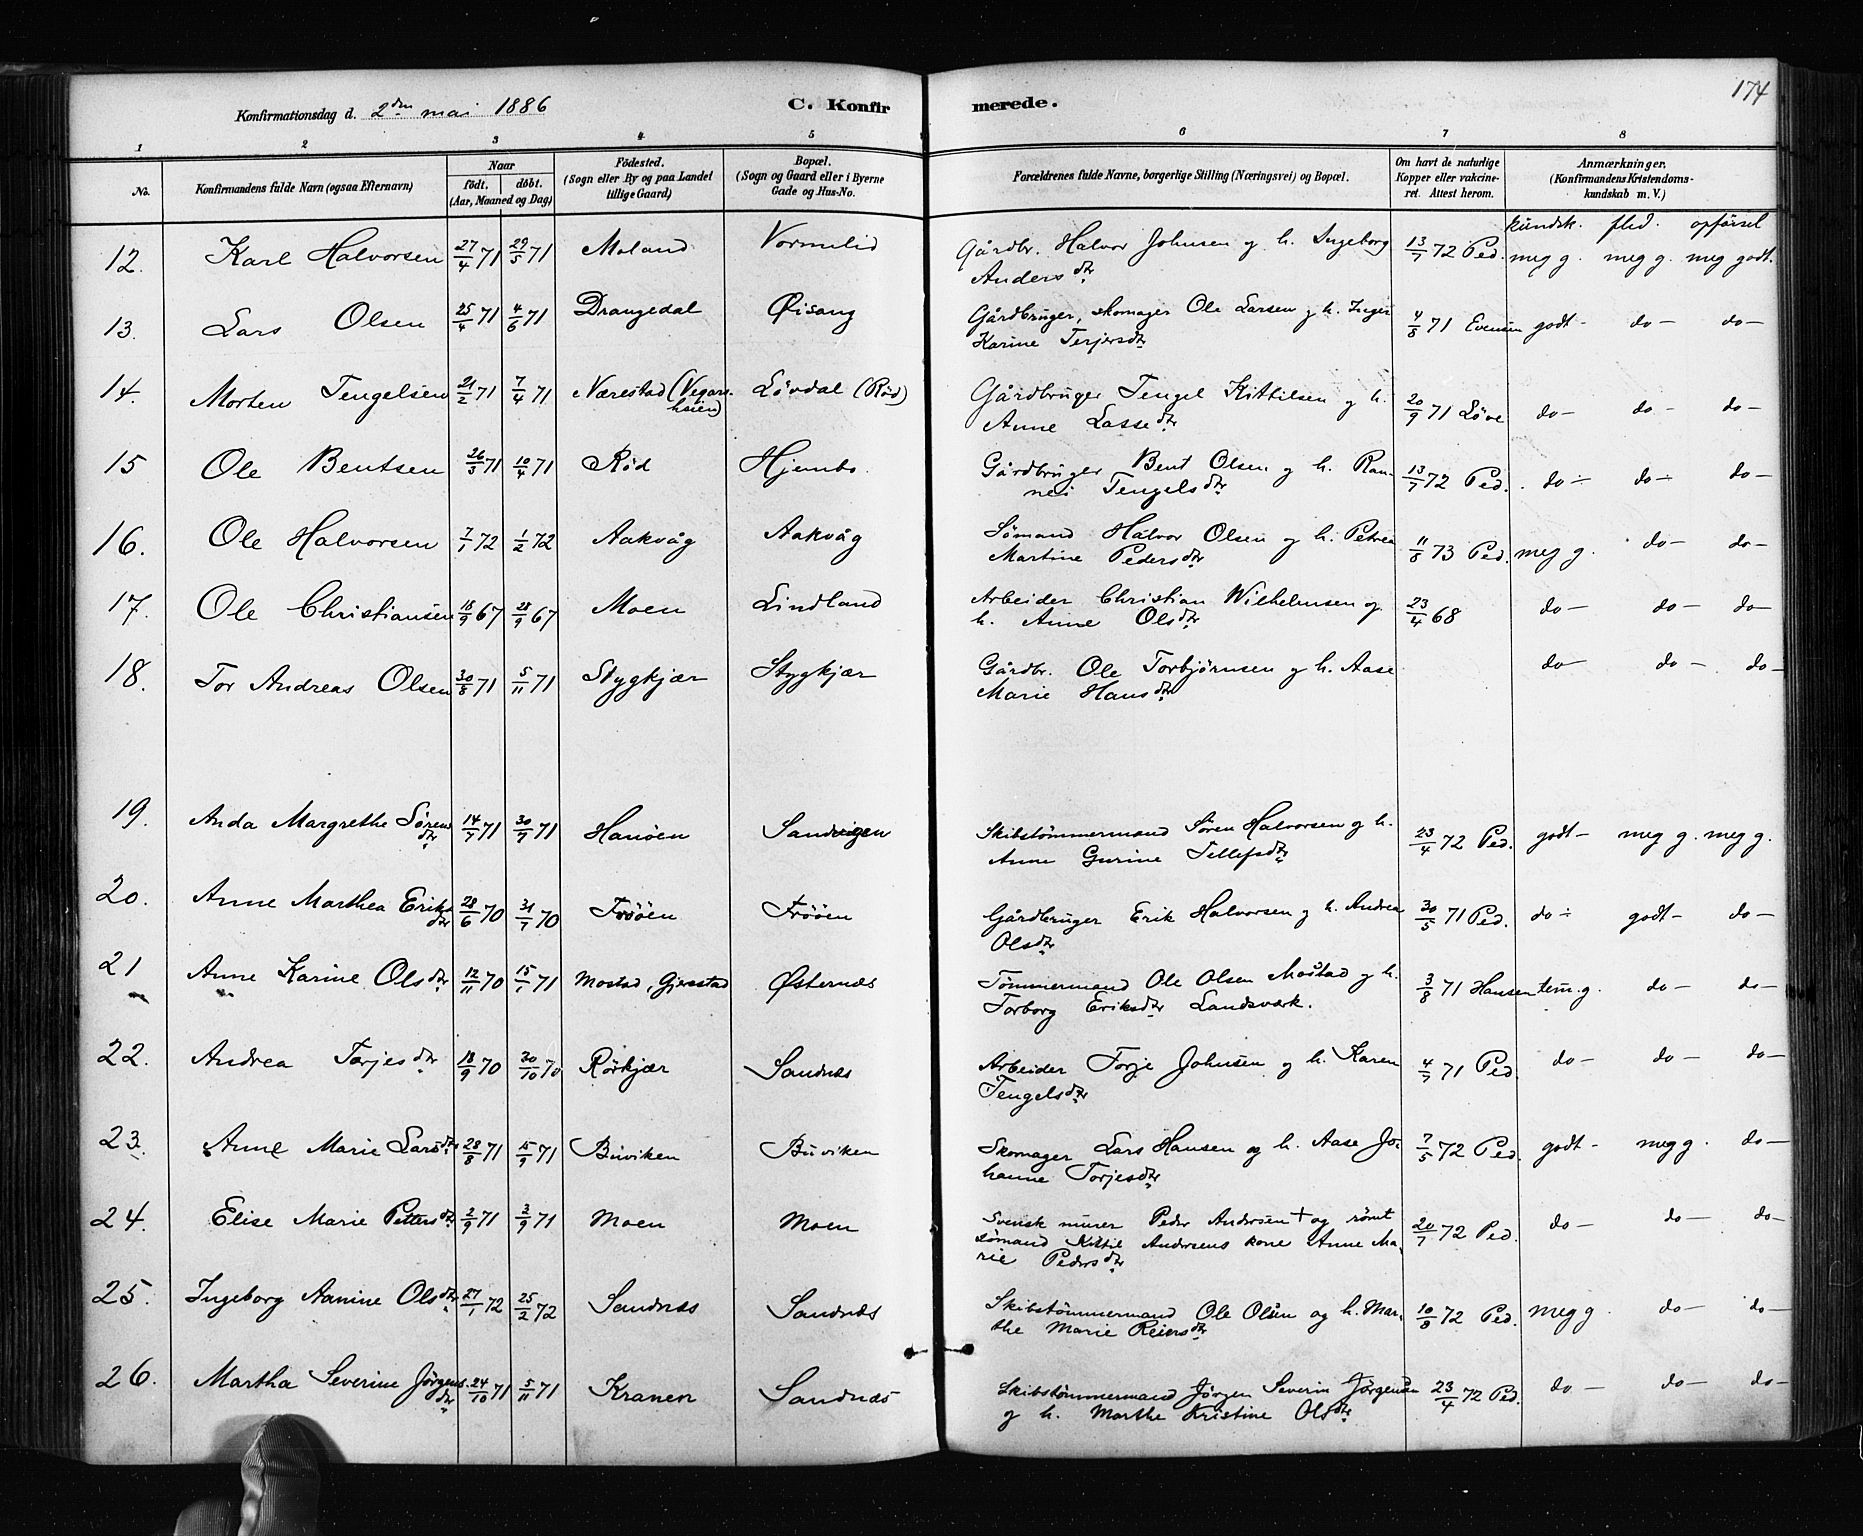 174
Konfirmationsdag d. 2den mai 1886 C. Konfir merede.
1 2 3 4 5 6 7 8
No. Konfirmandens fulde Navn (ogsaa Efternavn) Naar födt. döbt. (Aar, Maaned og Dag) Födested. (Sogn eller By og paa Landet tillige Gaard) Bopæl. (Sogn og Gaard eller i Byerne Gade og Hus-No. Forældrenes fulde Navne, borgerlige Stilling (Næringsvei) og Bopæl. Om havt de naturlige Kopper eller vakcineret. Attest herom. Anmærkninger. (Konfirmandens Kristendomskundskab m. V.)
kundsk. flid. opførsel
12. Karl Halvorsen 27/4 71 29/5 71 Moland Vormelid Gårdbr. Halvor Johnsen og h. Ingeborg 13/7 72 Ped. meg g. meg g. meg godt.
Anders dtr
13. Lars Olsen 25/4 71 4/6 71 Drangedal Øisang Gårdbruger, skomager Ole Larsen og h. Inger 4/8 71 Evensen godt - do - do -
Karine Terjersdtr
14. Morten Tengelsen 21/2 71 7/4 71 Nærestad (Vegars- Løvdal (Rød) Gårdbruger Tengel Kittilsen og h. 20/9 71 Løve do - do - do -
heien) Anne Lassedtr
15 Ole Bentsen 26/3 71 10/4 71 Rød Hjembo. Gårdbruger Bent Olsen og h. Ran- 13/7 72 Ped. do - do - do -
nei Tengelsdtr
16. Ole Halvorsen 7/1 72 1/2 72 Aakvåg Aakvåg Sømand Halvor Olsen og h. Petrea 11/8 73 Ped. meg g. do - do -
Martine Pedersdtr
17. Ole Christiansen 18/9 67 28/9 67 Moen Lindland Arbeider Christian Wilhelmsen og 23/4 68 do - do - do -
h. Anne Olsdtr
18. Tor Andreas Olsen 30/8 71 5/11 71 Stygkjær Stygkjær Gårdbr. Ole Torbjørnsen og h. Aase do - do - do -
Marie Hansdtr
19. Anda Margrethe Sørens 14/7 71 30/9 71 Hanøen Sandvigen Skibstømmermand Søren Halvorsen og h. 23/4 72 Ped. godt - meg g. meg g.
dtr Anne Gurine Tellefsdtr
20. Anne Marthea Eriks 28/6 70 31/7 70 Frøöen Frøöen Gårdbruger Erik Halvorsen og h. Andrea 30/5 71 Ped. do - godt - do -
dtr Olsdtr
21 Anne Karine Olsdtr 12/11 70 15/1 71 Mostad, Gjerstad Østernæs Tømmermand Ole Olsen Mostad og h. 3/8 71 Hansen tem. g. do - do -
Torborg Eriksdtr Landsværk.
22. Andrea Torjesdtr 18/9 70 30/10 70 Rørkjær Sandnæs Arbeider Torje Johnsen og h. Karen 4/7 71 Ped. do - do - do -
Tengelsdtr
23. Anne Marie Larsdtr 28/8 71 15/9 71 Buviken Buviken Skomager Lars Hansen og h. Aase Jo- 7/5 72 Ped. godt - meg g. do -
hanne Torjesdtr
24. Elise Marie Pettersdtr 2/9 71 3/9 71 Moen Moen Svensk murer Peder Andersen † og rømt 20/7 72 Ped. do - do - do -
sømand Kittil Andersens kone Anne Ma-
rie Pedersdtr
25. Ingeborg Aanine Olsdtr 27/1 72 25/2 72 Sandnæs Sandnæs Skibstømmermand Ole Olsen og h. Mar- 10/8 72 Ped. meg g do - do -
the Marie Reiersdtr
26. Martha Severine Jørgens. 24/10 71 5/11 71 Kranen Sandnæs Skibstømmermand Jørgen Severin Jørgensen 23/4 72 Ped. do - do - do -
dtr og h. Marthe Kristine Olsdtr